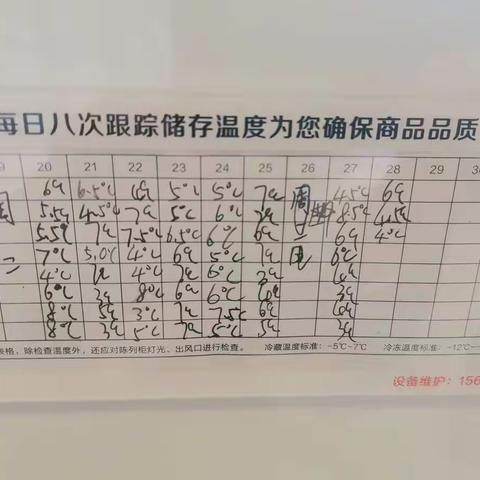 每日八次跟踪储存温度为您确保商品品质
20 21 22 23 24 25 26 27 28 29
6℃ 6.5℃ 5℃ 5℃ 7℃ 周 4.5℃ 6℃
5.5℃ 4.5℃ 7℃ 5℃ 6℃ 8.5℃
5.5℃ 7℃ 7.5℃ 6.5℃ 6℃ 6℃ 6℃ 4℃
二 7℃ 5.0℃ 4℃ 6℃ 5℃ 7℃ 6℃
4℃ 4℃ 7℃ 6℃ 3℃
6℃ 3℃ 8℃ 6℃ 6℃ 3℃
8℃ 5℃ 3℃ 7℃ 7.5℃ 6℃
8℃ 3℃ 5℃ 7℃ 5℃ 3℃
表格，除检查温度外，还应对陈列柜灯光、出风口进行检查。 冷藏温度标准：-5℃-7℃ 冷冻温度标准：-12℃-
设备维护：156